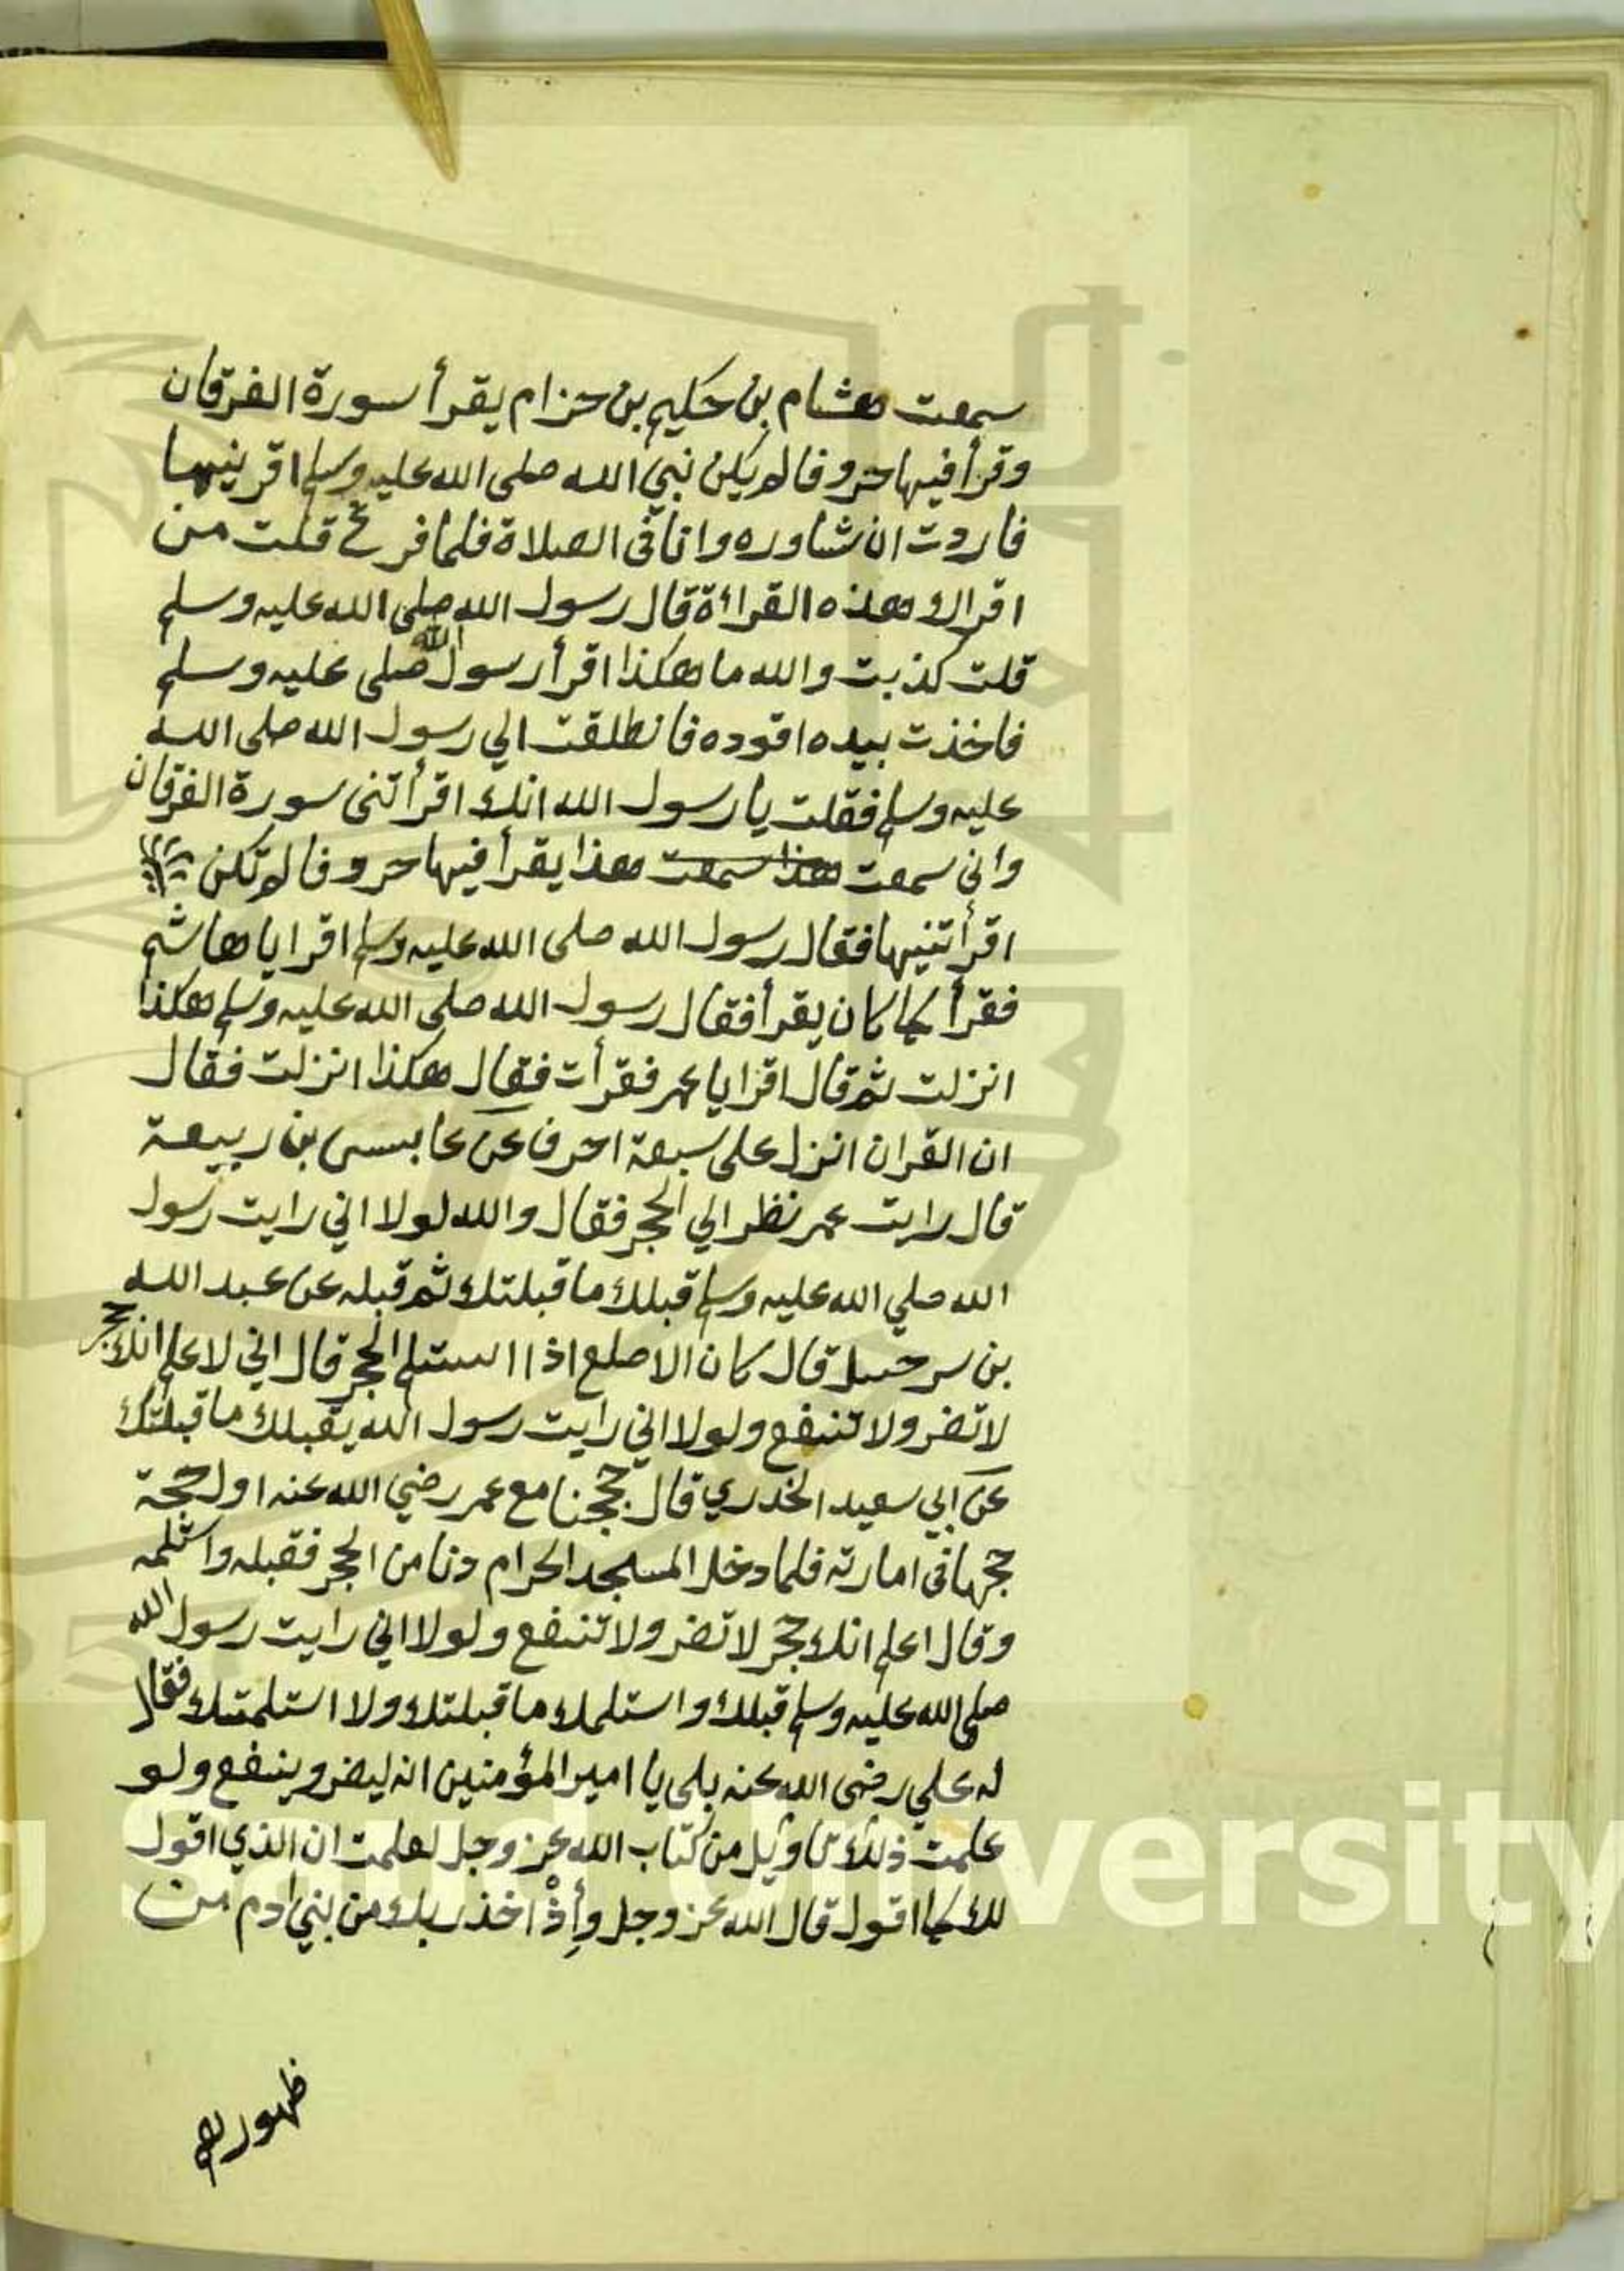 سمعت هشام بن حكيم بن حزام يقرأ سورة الفرقان
وقرأ فيها حروفا لم يكن نبي الله صلى الله عليه وسلم اقرينيها
فاردت ان شاوره وانا في الصلاة فلما فرغ قلت من
اقراك هذه القراءة قال رسول الله صلى الله عليه وسلم
قلت كذبت والله ما هكذا اقرأ رسول الله صلى عليه وسلم
فاخذت بيده اقوده فانطلقت الي رسول الله صلى الله
عليه وسلم فقلت يا رسول الله انك اقرأتنى سورة الفرقان
وانى سمعت هذا سمعت هذا يقرأ فيها حروفا لم تكن
اقرأتنيها فقال رسول الله صلى الله عليه وسلم اقرا يا هاشم
فقرأ كما كان يقرأ فقال رسول الله صلى الله عليه وسلم هكذا
انزلت ثم قال اقرا يا عمر فقرأت فقال هكذا انزلت فقال
ان القران انزل على سبعة احرف عن عابس بن ربيعة
قال رايت عمر نظر الي الحجر فقال والله لولا اني رايت رسول
الله صلي الله عليه وسلم قبلك ما قبلتك ثم قبله عن عبد الله
بن سرحسل قال كان الاصلع اذا استلم الحجر قال اني لاعلم انك حجر
لا تضر ولا تنفع ولولا اني رايت رسول الله يقبلك ما قبلتك
عن ابي سعيد الخدري قال حججنا مع عمر رضي الله عنه اول حجة
حجها في امارته فلما دخل المسجد الحرام دنا من الحجر فقبله واستلمه
وقال اعلم انك حجر لا تضر ولا تنفع ولولا اني رايت رسول الله
صلى الله عليه وسلم قبلك واستلمك ما قبلتك ولا استلمتك فقال
له علي رضى الله عنه بلى يا امير المؤمنين انه ليضر وينفع ولو
علمت ذلك تاويل من كتاب الله عز وجل لعلمت ان الذي اقول
لك كما اقول قال الله عز وجل وإذ اخذ ربك من بني ادم من
ظهورهم
Saud University